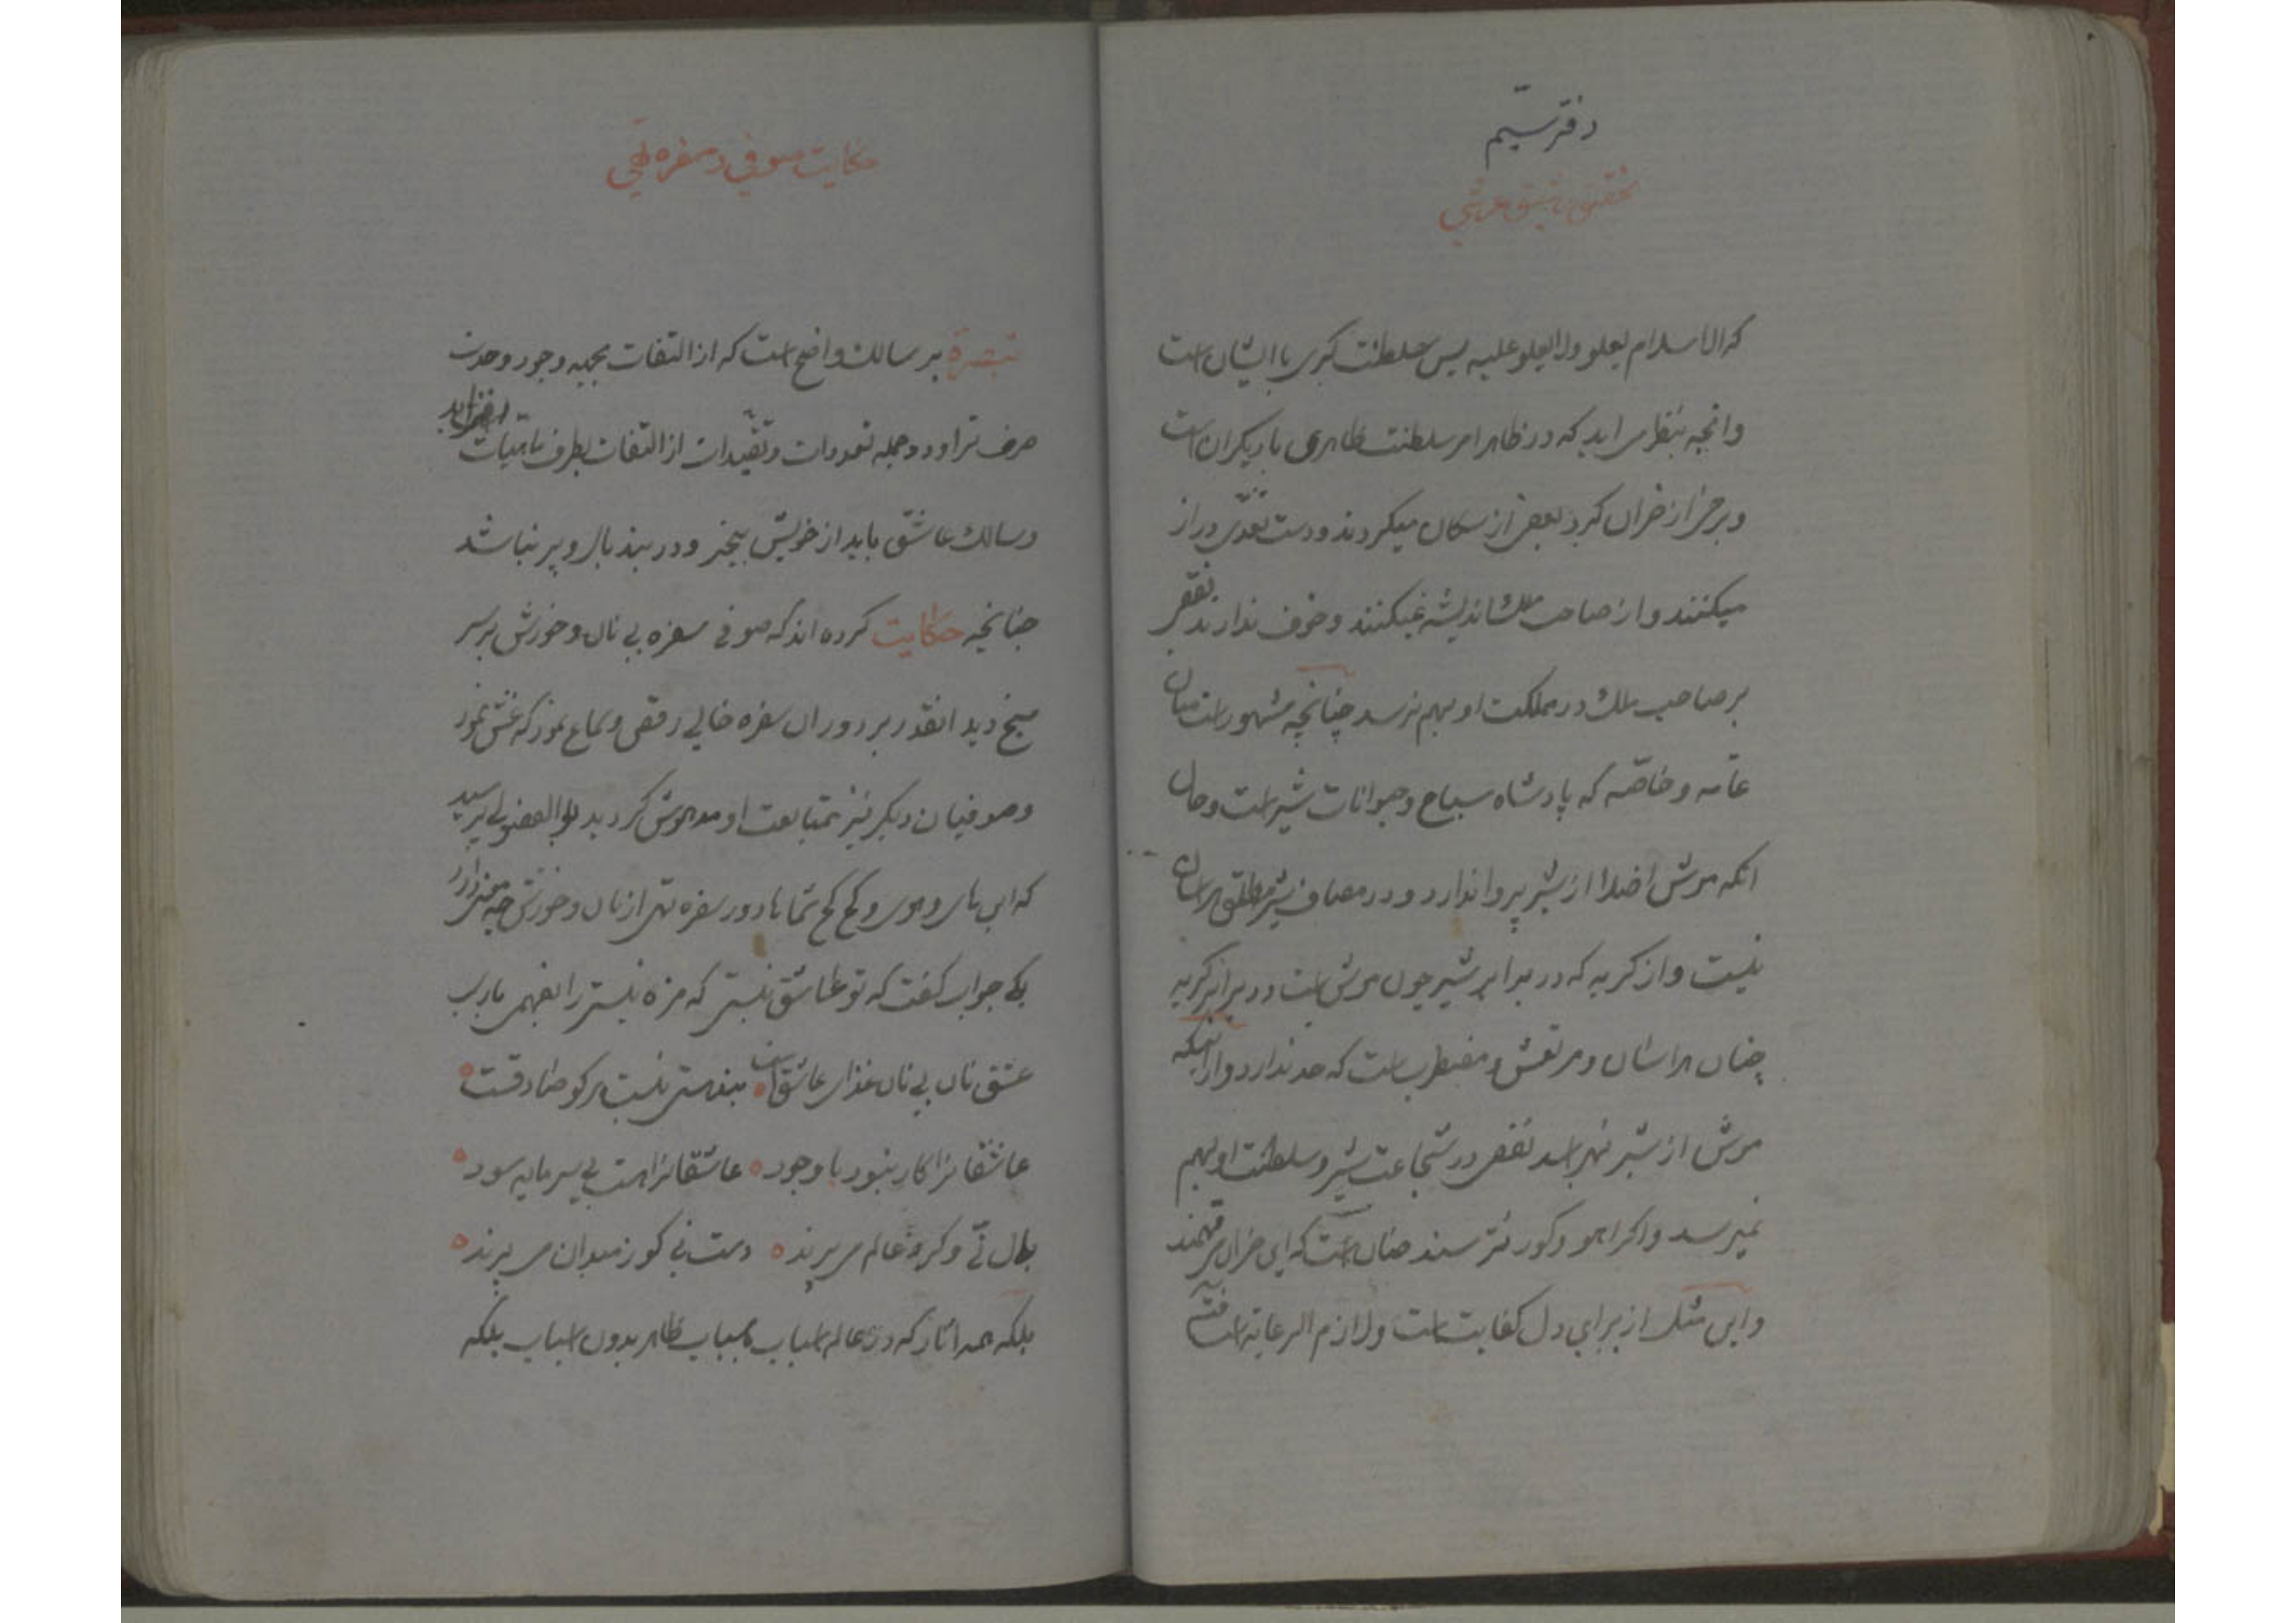 دفتر سیم
تحقیق رشیق عرشی
که الاسلام یعلو ولا یعلو علیه پس سلطنت کبری با ایشان است
وانچه بنظر می اید که در ظاهر امر سلطنت ظاهری با دیکران است
وبرخی از خران کرد بعضی از سکان میکردند ودست تعدی دراز
میکنند و از صاحب ملک اندیشه نمیکنند وخوف ندارند نقصی
بر صاحب ملک در مملکت او بهم نرسد چنانچه مشهور است میان
عامه وخاصه که پادشاه سباع وحیوانات شیر است وحال
انکه موش اصلا از شیر پروا ندارد و در مصاف شیر مطلق هراسان
نیست واز کربه که در برابر شیر چون موش است ودر برابر کربه
چنان هراسان ومرتعش و مضطرب است که حد ندارد واز اینکه
موش از شیر نهراسد نقصی در شجاعت شیر وسلطنت او بهم
نمیرسد واکر اهو وکور نترسند چنان است که این حرال می فهمند
واین مثل از برای دل کفایت است ولازم الرعایه است فتنبه
حکایت صوفی و سفره تهی
تبصرة بر سالک واضح است که از التفات بجنبه وجود وحدت
صرف تراود وجمله تعددات وتقیدات از التفات بطرف ماهیات افزاید
وسالک عاشق باید از خویش بیخبر ودر بند بال و پر نباشد
چنانچه حکایت کرده اند که صوفی سفره بی نان وخورش بر سر
میخ دید انقدر بر دور ان سفره خالی رقص وسماع نمود که غش نمود
وصوفیان دیکر نیز بمتابعت او مدهوش کردید بو الفضولی پرسید
که این های وهوی و کخ کخ شما با دور سفره تهی از نان وخورش چه معنی دارد
یکی جواب کفت که تو عاشق نیستی که مزه نیستی را بفهمی یا رب
عشق نان بی نان غذای عاشق است ه بند هستی نیست هر کو صادقست ه
عاشقانرا کار نبود با وجود ه عاشقانرا هست بی سرمایه سود ه
بال نی و کرد عالم می پرند ه دست نی کو ز میدان می برند ه
بلکه همه اثار که در عالم اسباب باسباب ظاهر بدون اسباب بلکه